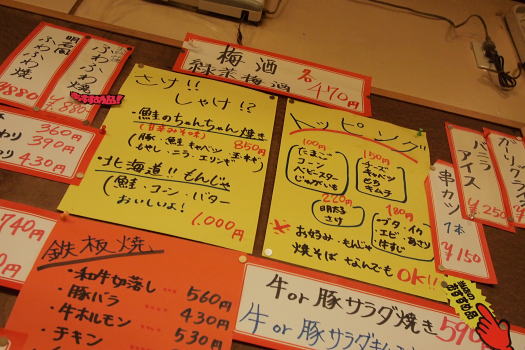 梅酒
緑茶梅酒 各470円
明石風
ふわふわ焼
¥880
ふわふわ焼
¥880
さけ!! しゃけ!?
・鮭のちゃんちゃん焼き
(甘辛みそ味) 850円
(豚、鮭、キャベツ、玉ネギ
もやし・ニラ・エリンギ)
・北海道!! もんじゃ
(鮭・コーン・バター
おいしいよ! 1,000円
トッピング
100円
たまご
コーン
ベビースター
じゃがいも
150円
チーズ
キャベツ
もち
キムチ
220円
明太子
さけ
180円
ブタ・イカ
・エビ・あさり
牛すじ
※お好み・もんじゃ
焼そばなんでもOK!!
串カツ
1本
¥150
バニラ
アイス
¥250
360円
390円
430円
740円
940円
鉄板焼
・和牛如落し… 560円
・豚バラ … 430円
・牛ホルモン … 530円
・チキン
牛or豚サラダ焼き 590
牛or豚サラダ
当店の
おすすめ品